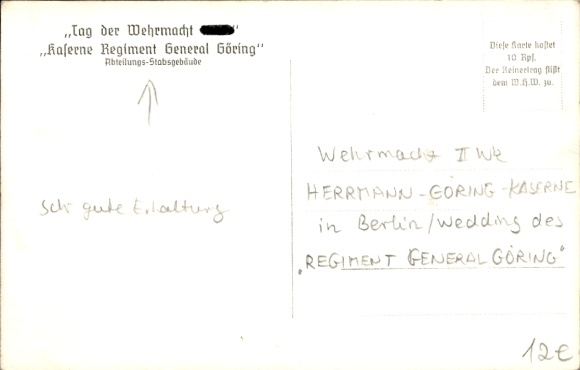 „Tag der Wehrmacht “
„Kaserne Regiment General Göring“
Abteilungs-Stabsgebäude
Diese Karte kostet
10 Rpf.
Der Reinertrag fließt
dem W.H.W. zu.
Wehrmacht II Wk
HERRMANN-GÖRING-KASERNE
in Berlin/Wedding des
"REGIMENT GENERAL GÖRING"
Sehr gute Erhaltung
12€